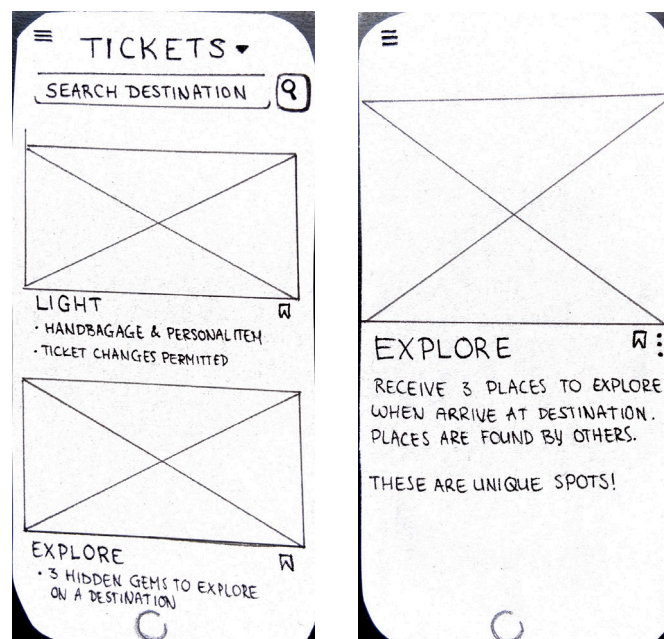 TICKETS
SEARCH DESTINATION
LIGHT
· HANDBAGAGE & PERSONAL ITEM
· TICKET CHANGES PERMITTED
EXPLORE
· 3 HIDDEN GEMS TO EXPLORE
ON A DESTINATION
EXPLORE
RECEIVE 3 PLACES TO EXPLORE
WHEN ARRIVE AT DESTINATION.
PLACES ARE FOUND BY OTHERS.
THESE ARE UNIQUE SPOTS!